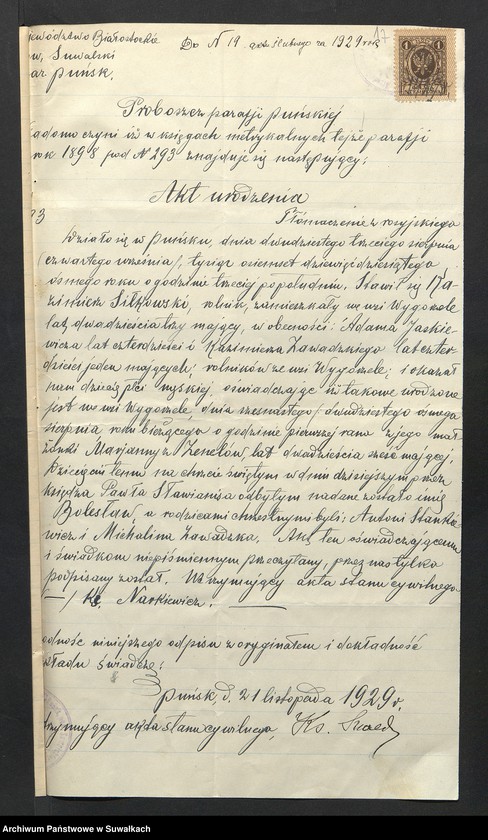 wództwo Białostockie
w. Suwalski
Puńsk.
Do N 19 aktu ślubnego za 1929 rok
17
1
Proboszcz parafji puńskiej
adomo czyni iż w księgach metrykalnych tejże parafji
rok 1898 pod N 293 znajduje się następujący:
Akt urodzenia
93
Tłómaczenie z rosyjskiego
Działo się w Puńsku, dnia dwudziestego trzeciego sierpnia
/czwartego września/, tysiąc osiemset dziewięćdziesiątego
ósmego roku o godzinie trzeciej popołudniu. Stawił się Ka-
zimierz Sitkowski, rolnik, zamieszkały we wsi Wygorzele
lat dwadzieścia trzy mający, w obecności: Adama Jaskie-
wicza lat czterdzieści i Kazimierza Zawadzkiego lat czter-
dzieści jeden mających, rolników ze wsi Wygorzele, i okazał
nam dziecię płci męskiej, oświadczając iż takowe urodzone
jest we wsi Wygorzele, dnia szesnastego /dwudziestego ósmego
sierpnia roku bieżącego o godzinie pierwszej rano z jego mał-
żonki Marjanny z Zenelów, lat dwadzieścia sześć mającej.
Dziecięciu temu na chrzcie świętym w dniu dzisiejszym przez
księdza Pawła odbytym nadane zostało imię
Bolesław, a rodzicami chrzestnymi byli: Antoni Stankie-
wicz i Michalina Zawadzka. Akt ten oświadczającemu
i świadkom niepiśmiennym przeczytany, przez nas tylko
podpisany został. Utrzymujący akta stanu cywilnego
/—/ Ks. Narkiewicz.
odność niniejszego odpisu z oryginałem i dokładność
kładu świadczę:
Puńsk, d. 21 listopada 1929 r.
trzymujący akta stanu cywilnego, Ks.
Archiwum Państwowe w Suwałkach